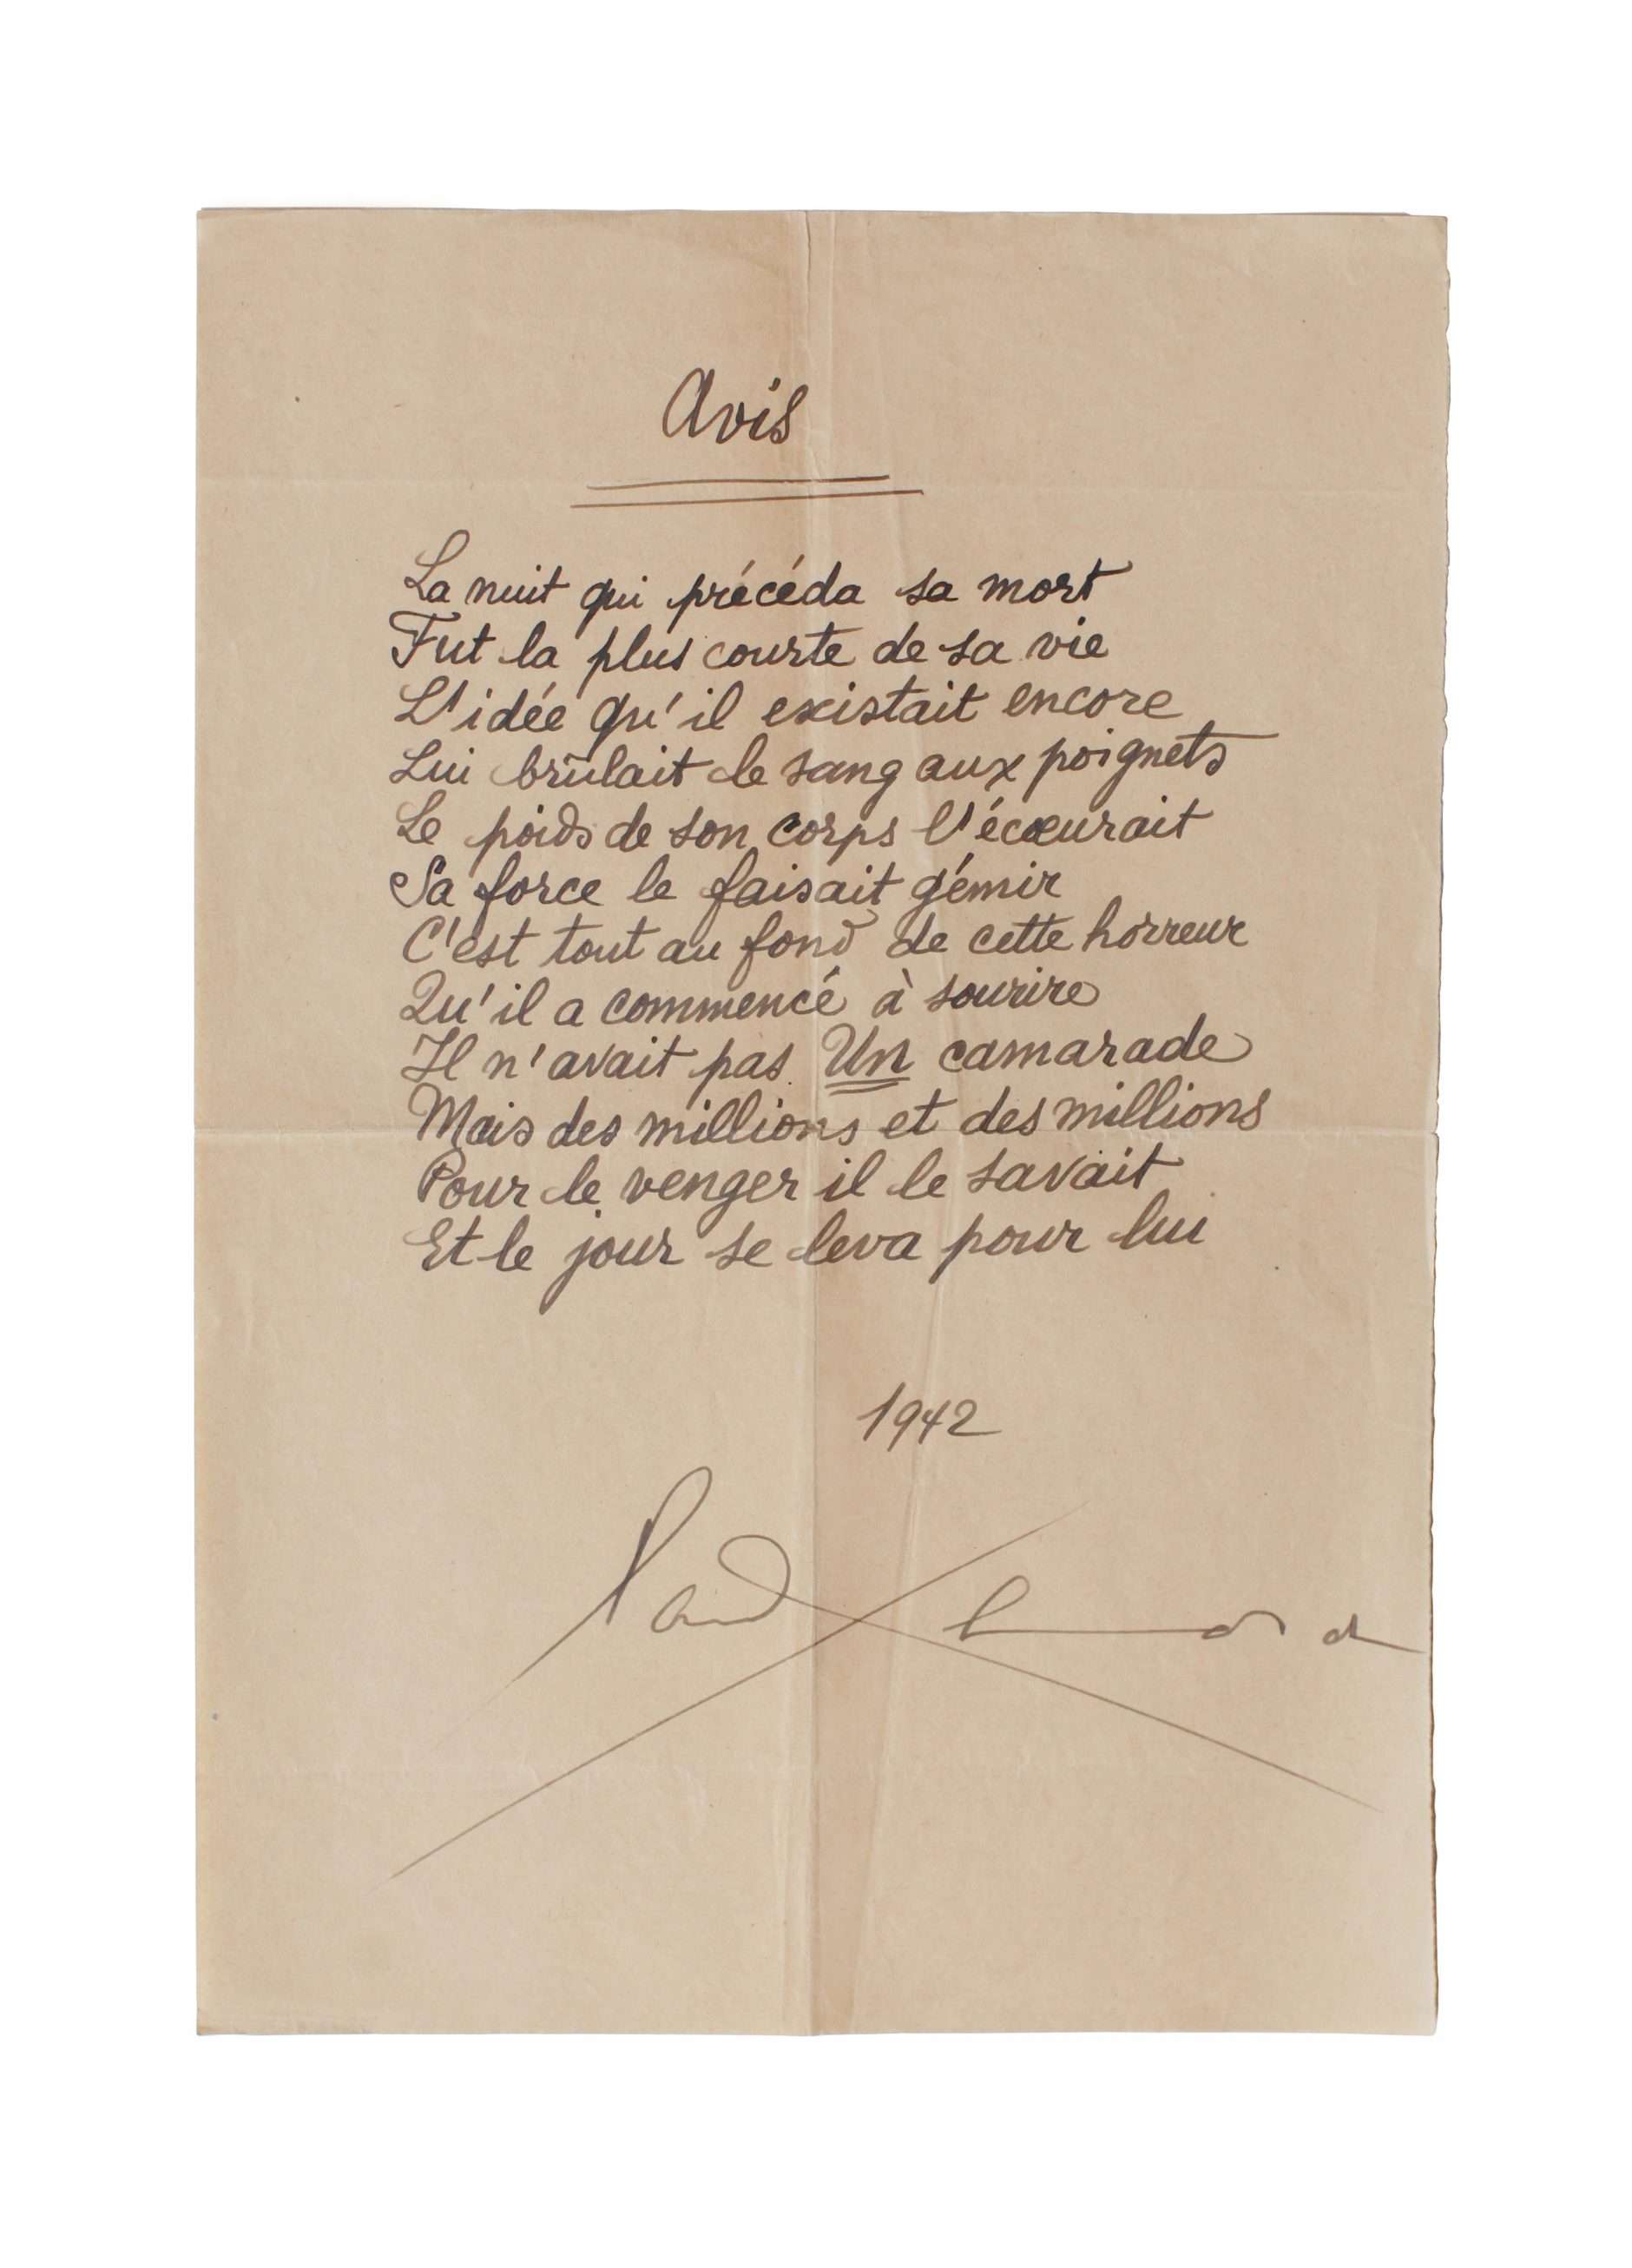 Avis
La nuit qui précéda sa mort
Fut la plus courte de sa vie
L'idée qu'il existait encore
Lui brûlait le sang aux poignets
Le poids de son corps l'écœurait
Sa force le faisait gémir
C'est tout au fond de cette horreur
Qu'il a commencé à sourire
Il n'avait pas Un camarade
Mais des millions et des millions
Pour le venger il le savait
Et le jour se leva pour lui
1942